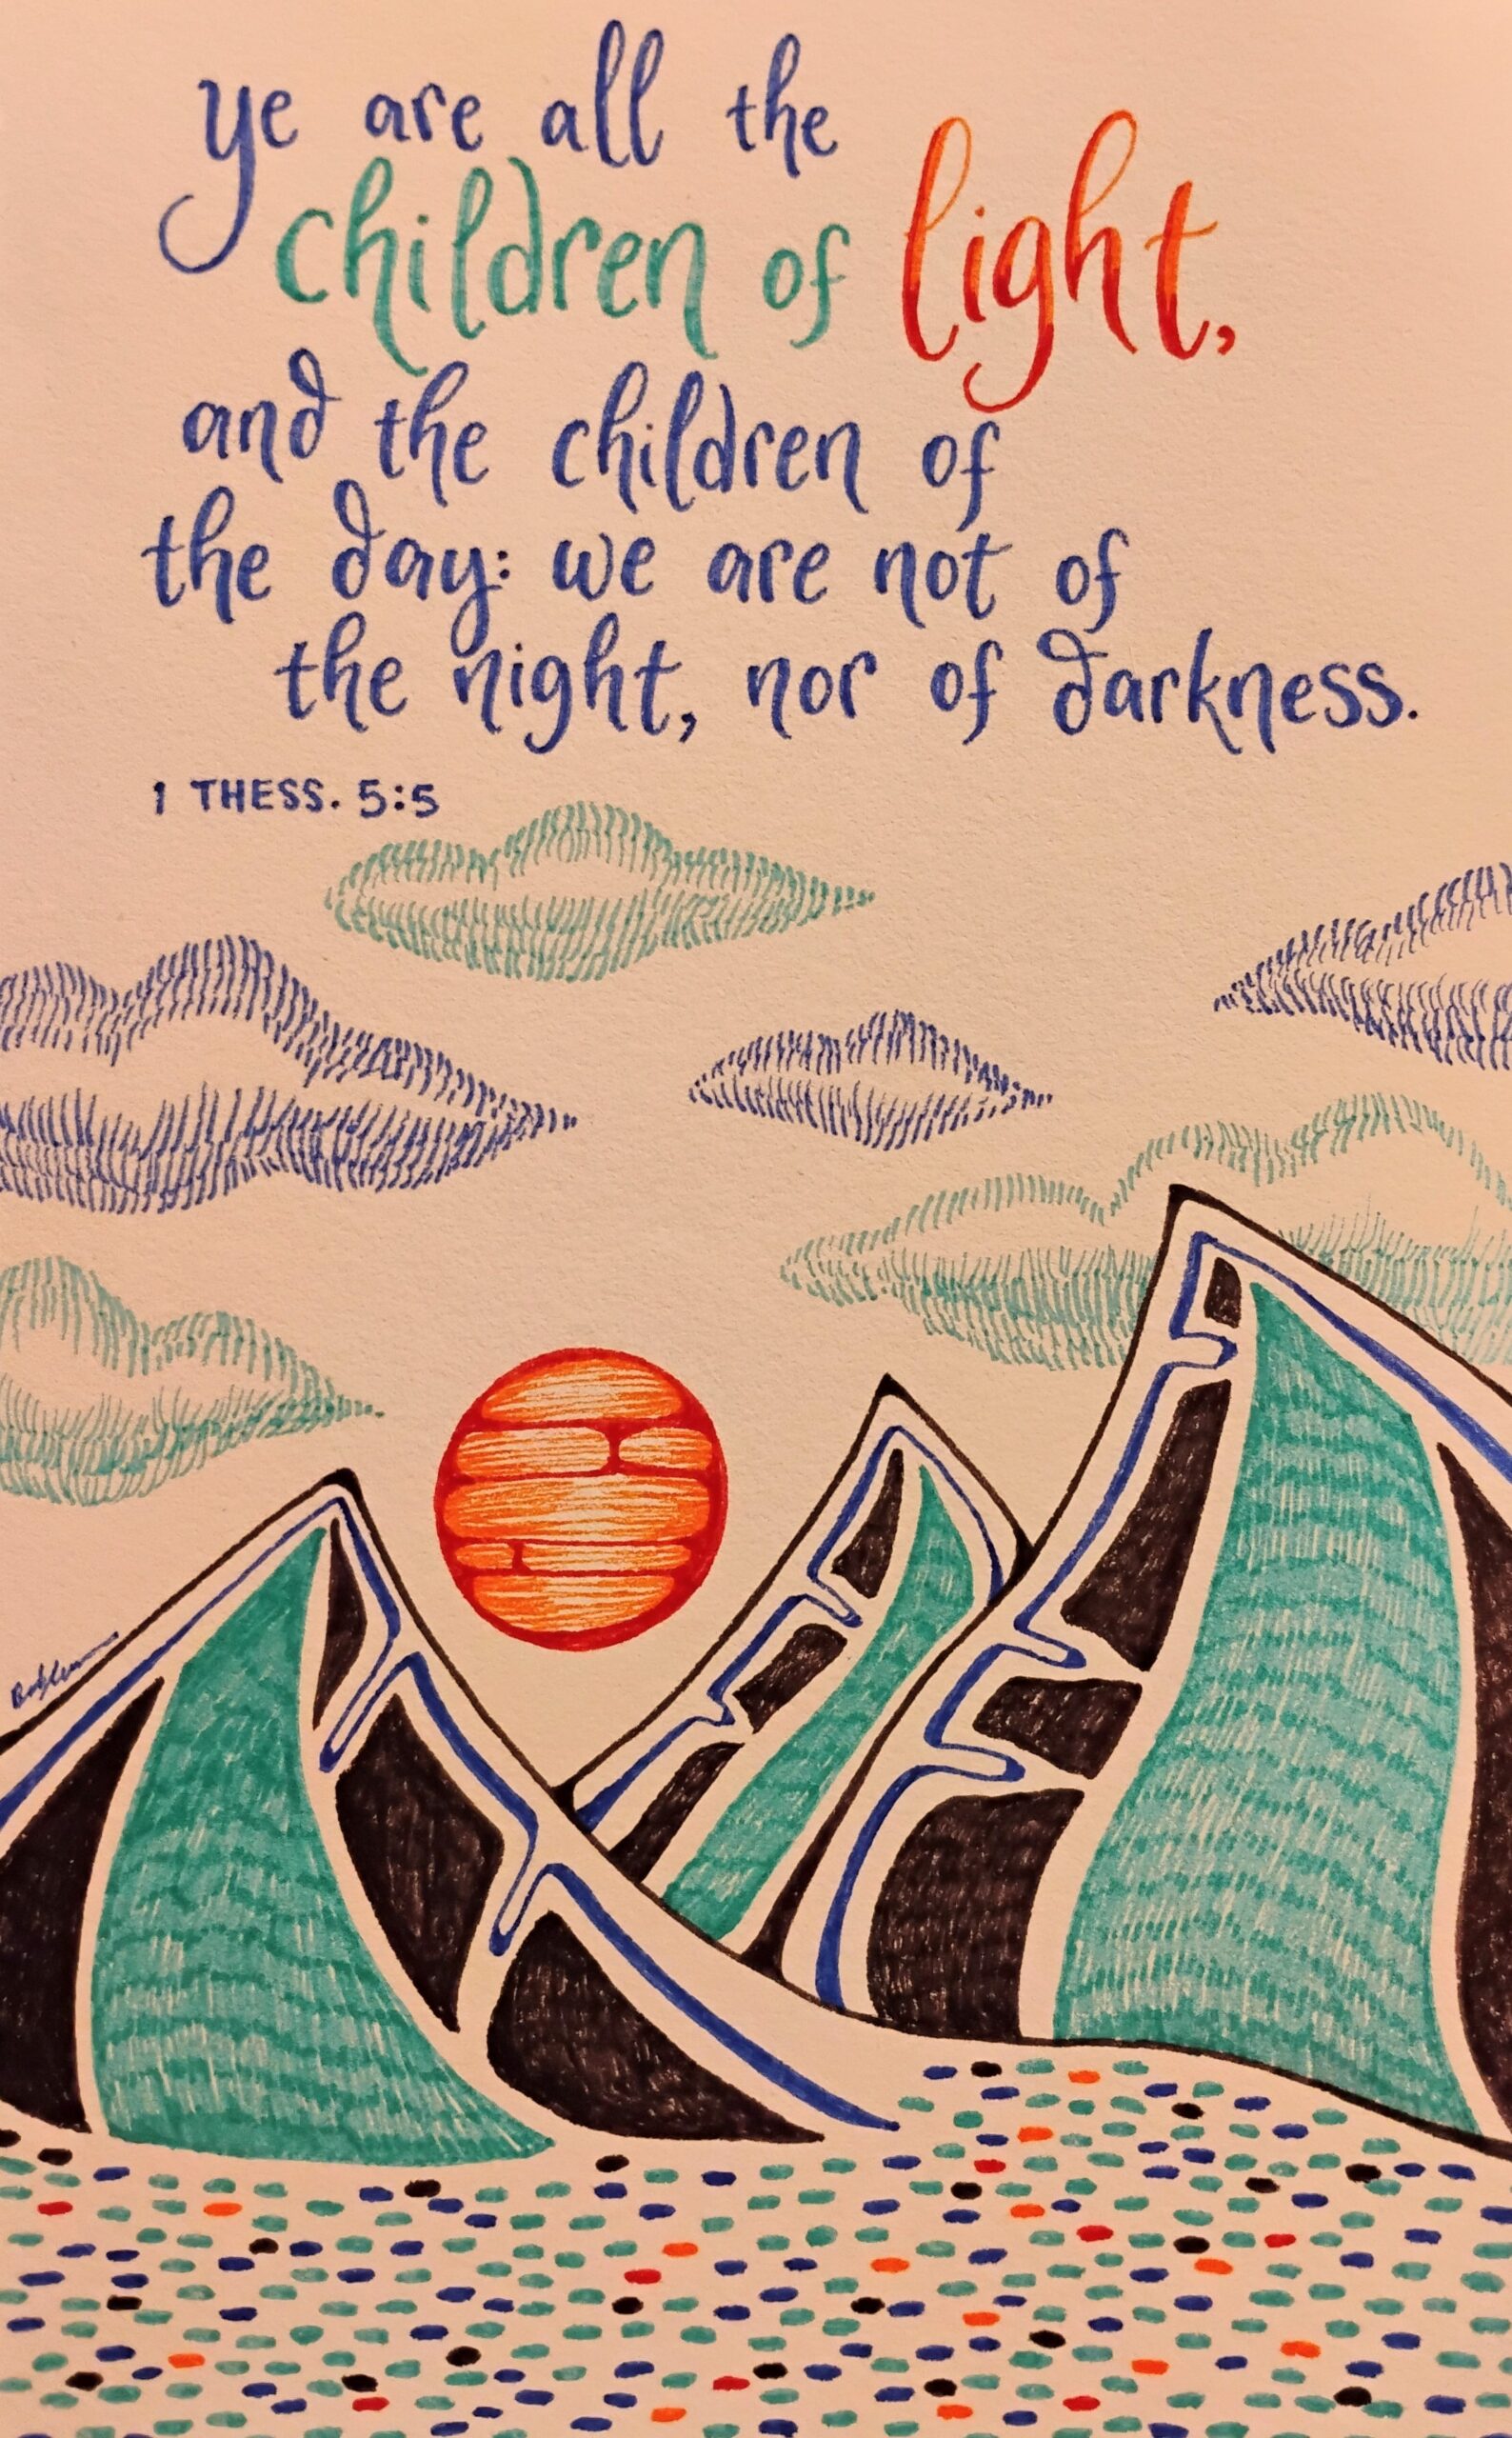 ye are all the
children of light,
and the children of
the day: we are not of
the night, nor of darkness.
1 THESS. 5:5